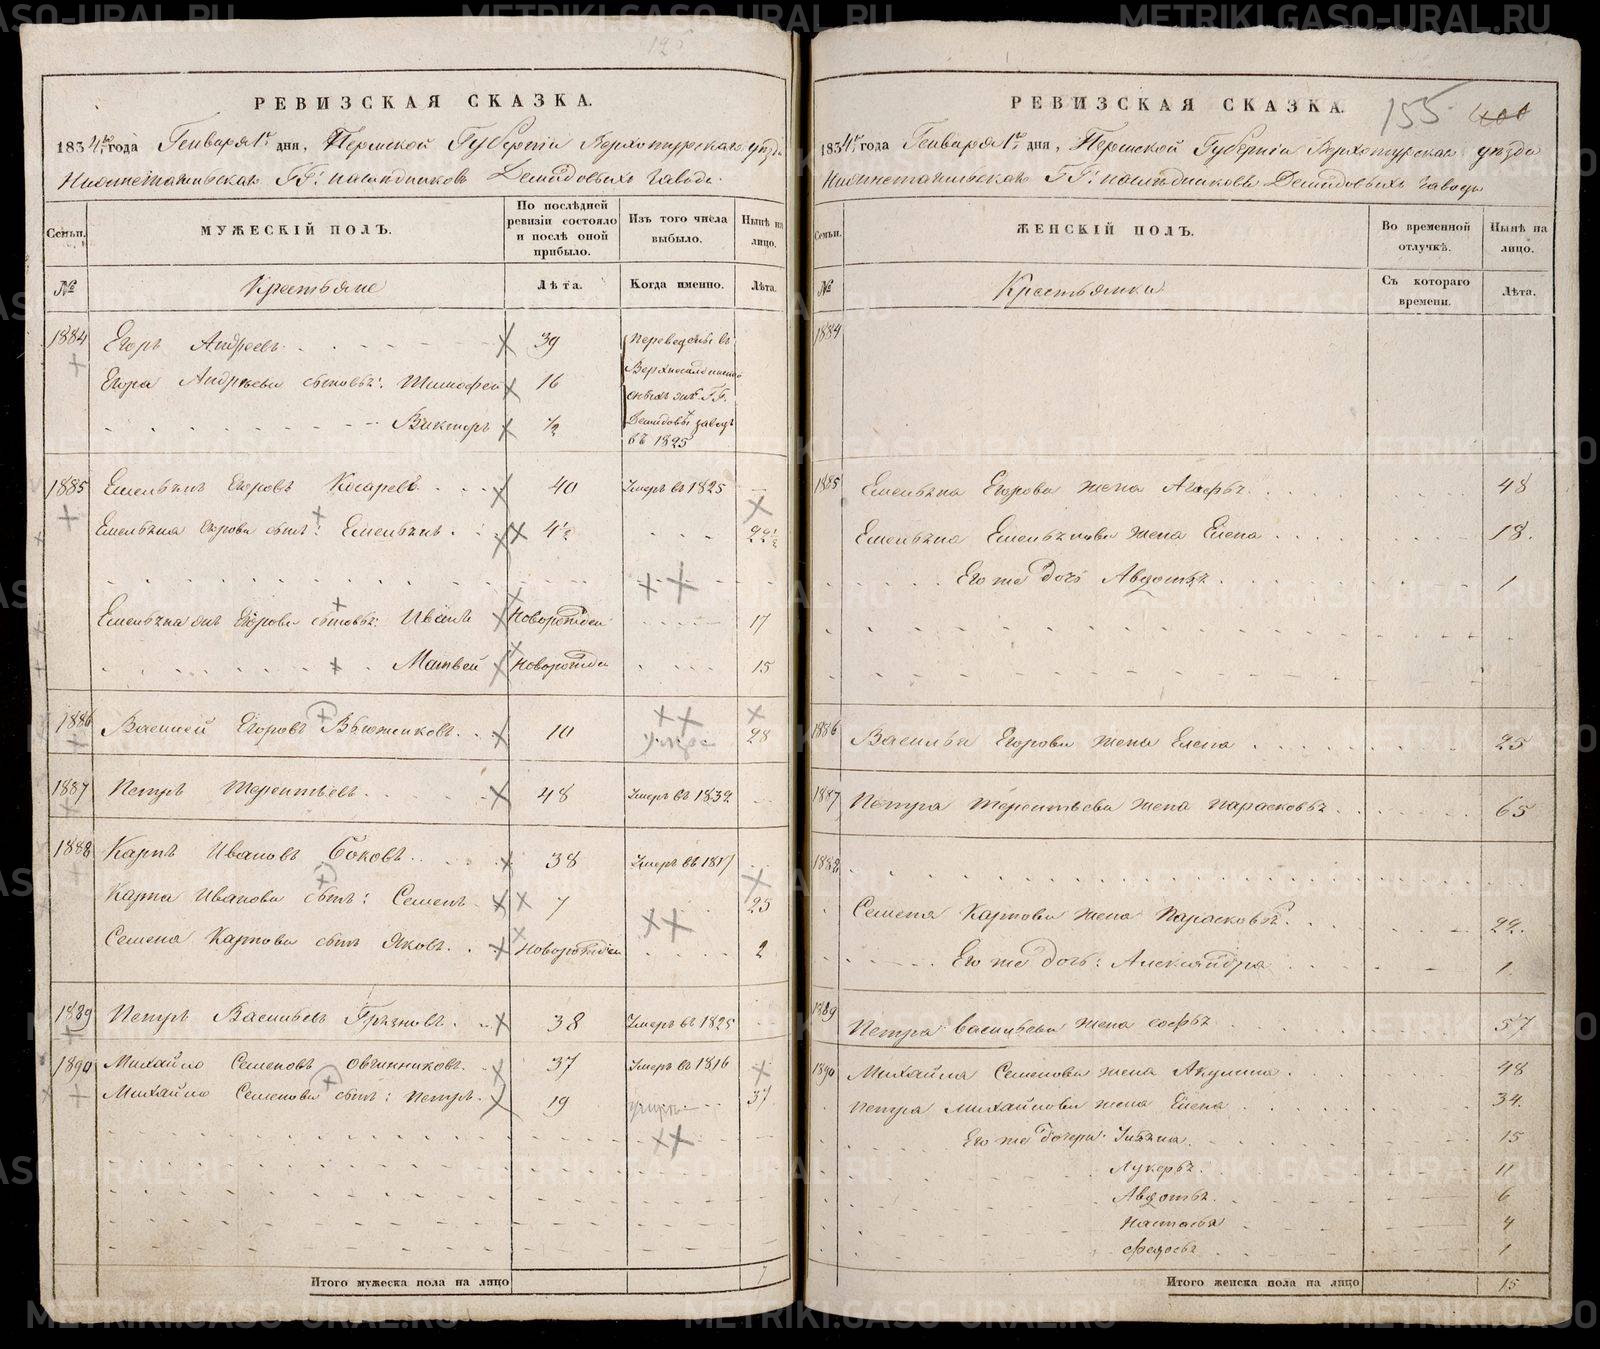 РЕВИЗСКАЯ СКАЗКА.
1834 года Генваря 1 дня, Пермской Губернiи Верхотурскаго уезда
Нижнетагильскаго ГГ. наследниковъ Демидовыхъ завода
Семьи.
МУЖЕСКIЙ ПОЛЪ.
По послѣдней ревизiи состояло и послѣ оной прибыло.
Изъ того числа выбыло.
Нынѣ на лицо.
№
Крестьяне
Лѣта.
Когда именно.
Лѣта.
1884 Егоръ Андреевъ 39 переведены въ
Егора Андреева сыновья: Тимофей 16
Викторъ ½ Демидовы заводъ
въ 1825
1885 Емельянъ Егоровъ Косаревъ 40 Умеръ въ 1825
Емельяна Егорова сынъ: Емельянъ 4½ 22½
Емельяна Егорова сыновья: Иванъ Новорожден 17
Матвей Новорожден 15
1886 Василей Егоровъ 10 28
1887 Петръ Терентьевъ 48 Умеръ въ 1832
1888 Карпъ Ивановъ Боковъ 38 Умеръ въ 1817
Карпа Иванова сынъ: Семенъ 7 25
Семена Карпова сынъ Яковъ Новорожден 2
1889 Петръ Васильевъ Грязновъ 38 Умеръ въ 1825
1890 Михайло Семеновъ Овчинниковъ 37 Умеръ въ 1816
Михайло Семенова сынъ: Петръ 19 37
Итого мужеска пола на лицо 7
РЕВИЗСКАЯ СКАЗКА. 155
1834 года Генваря 1 дня, Пермской Губернiи Верхотурскаго уезда
Нижнетагильскаго ГГ. наследниковъ Демидовыхъ завода
Семьи.
ЖЕНСКIЙ ПОЛЪ.
Во временной отлучкѣ.
Нынѣ на лицо.
№
Крестьянки
Съ котораго времени.
Лѣта.
1884
1885 Емельяна Егорова жена Агафья 48
Емельяна Емельянова жена Елена 18.
Его же дочь Авдотья 1
1886 Василья Егорова жена Елена 25
1887 Петра Терентьева жена Парасковья 65
1888
Семена Карпова жена Парасковья 22.
Его же дочь: Александра 1
1889 Петра Васильева жена Софья 57
1890 Михайла Семенова жена Акулина 48
Петра Михайлова жена Елена 34.
Его же дочери: Ульяна 15
Лукерья 11
Авдотья 6
Настасья 4
Федосья 1
Итого женска пола на лицо 15
METRIKI.GASO-URAL.RU